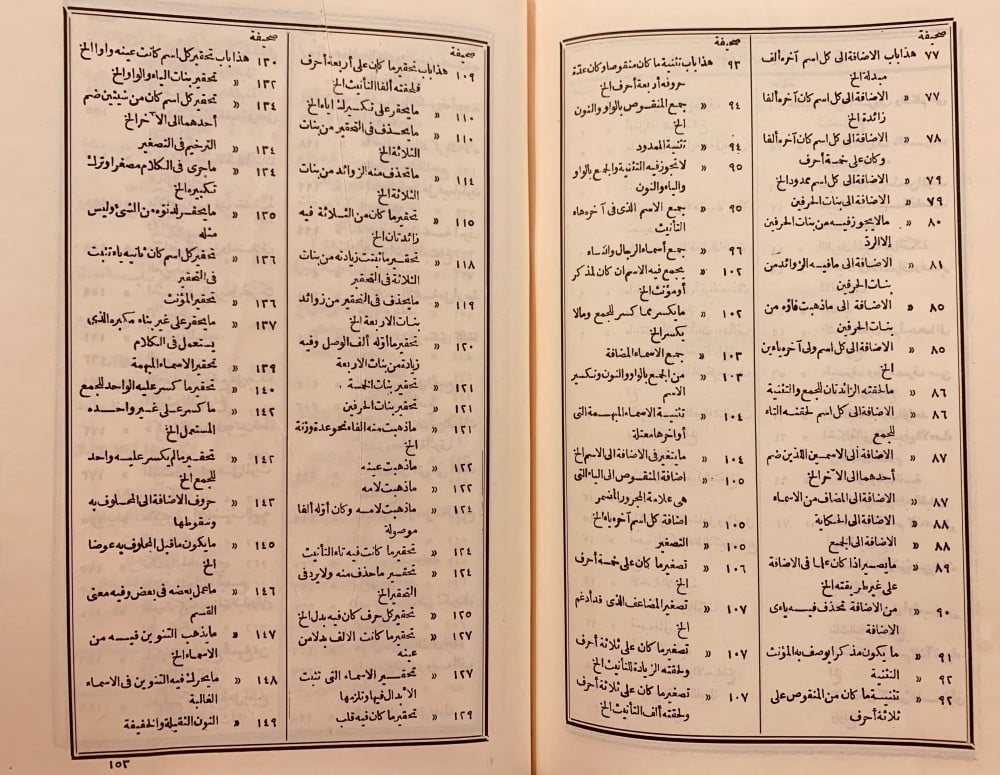 صحيفة
٧٧ هذا باب الاضافة الى كل اسم آخره ألف
مبدلة الخ
٧٧ « الاضافة الى كل اسم كان آخره ألفا
زائدة الخ
٧٨ « الاضافة الى كل اسم كان آخره ألفا
وكان على خمسة أحرف
٧٩ « الاضافة الى كل اسم ممدود الخ
٧٩ « الاضافة الى بنات الحرفين
٨٠ « مالا يجوز فيه من بنات الحرفين
الا الرد
٨١ « الاضافة الى مافيه الزوائد من
بنات الحرفين
٨٥ « الاضافة الى ماذهبت فاؤه من
بنات الحرفين
٨٥ « الاضافة الى كل اسم ولى آخره ياءين
الخ
٨٦ « مالحقته الزائدتان للجمع والتثنية
٨٦ « الاضافة الى كل اسم لحقته التاء
للجمع
٨٧ « الاضافة الى الاسمين اللذين ضم
أحدهما الى الآخر الخ
٨٧ « الاضافة الى المضاف من الاسماء
٨٨ « الاضافة الى الحكاية
٨٨ « الاضافة الى الجمع
٨٩ « مايصير اذا كان علما فى الاضافة
على غير طريقته الخ
٩٠ « من الاضافة تحذف فيه ياءى
الاضافة
٩١ « ما يكون مذكرا يوصف به المؤنث
٩٢ « التثنية
٩٢ « تثنية ما كان من المنقوص على
ثلاثة أحرف
صحيفة
٩٣ هذا باب تثنية ما كان منقوصا وكان عدة
حروفه أربعة أحرف الخ
٩٤ « جمع المنقوص بالواو والنون
الخ
٩٤ « تثنية الممدود
٩٥ « لاتجوز فيه التثنية والجمع بالواو
والياء والنون
٩٥ « جمع الاسم الذى فى آخره هاء
التأنيث
٩٦ « جمع أسماء الرجال والنساء
١٠٢ « يجمع فيه الاسم ان كان لمذكر
أو مؤنث الخ
١٠٢ « مايكسر مما كسر للجمع ومالا
يكسر الخ
١٠٣ « جمع الاسماء المضافة
١٠٣ « من الجمع بالواو والنون وتكسير
الاسم
١٠٤ « تثنية الاسماء المبهمة التى
أواخرها معتلة
١٠٤ « مايتغير فى الاضافة الى الاسم الخ
١٠٥ « اضافة المنقوص الى الياء التى
هى علامة المجرور المضمر
١٠٥ « اضافة كل اسم آخره ياء الخ
١٠٥ « التصغير
١٠٦ « تصغير ما كان على خمسة أحرف
الخ
١٠٧ « تصغير المضاعف الذى قد أدغم
الخ
١٠٧ « تصغير ما كان على ثلاثة أحرف
ولحقته الزيادة للتأنيث الخ
١٠٧ « تصغير ما كان على ثلاثة أحرف
ولحقته ألف التأنيث الخ
صحيفة
١٠٩ هذا باب تحقير ما كان على أربعة أحرف
فلحقته ألفا التأنيث الخ
١١٠ « مايحقر على تكسيرك اياه الخ
١١٠ « مايحذف فى التحقير من بنات
الثلاثة الخ
١١٤ « ماتحذف منه الزوائد من بنات
الثلاثة الخ
١١٥ « تحقير ما كان من الثلاثة فيه
زائدتان الخ
١١٨ « تحقير ماثبتت زيادته من بنات
الثلاثة فى التحقير
١١٩ « مايحذف فى التحقير من زوائد
بنات الاربعة الخ
١٢٠ « تحقير ماأوله ألف الوصل وفيه
زيادة من بنات الاربعة
١٢١ « تحقير بنات الخمسة
١٢١ « تحقير بنات الحرفين
١٢١ « ماذهبت منه الفاء نحو عدة وزنة
الخ
١٢٢ « ماذهبت عينه
١٢٢ « ماذهبت لامه
١٢٤ « ماذهبت لامه وكان أوله ألفا
موصولة
١٢٤ « تحقير ما كانت فيه تاء التأنيث
١٢٤ « تحقير ماحذف منه ولايرد فى
التحقير الخ
١٢٥ « تحقير كل حرف كان فيه بدل الخ
١٢٧ « تحقير ما كانت الالف بدلا من
عينه
١٢٧ « تحقير الاسماء التى تثبت
الابدال فيها وتلزمها
١٢٩ « تحقير ما كان فيه قلب
صحيفة
١٣٠ هذا باب تحقير كل اسم كانت عينه واوا الخ
١٣٢ « تحقير بنات الياء والواو الخ
١٣٤ « تحقير كل اسم كان من شيئين ضم
أحدهما الى الآخر الخ
١٣٤ « الترخيم فى التصغير
١٣٤ « ماجرى فى الكلام مصغرا وترك
تكبيره الخ
١٣٥ « مايحقر لدنوه من الشئ وليس
مثله
١٣٦ « تحقير كل اسم كان ثانيه ياء تثبت
فى التحقير
١٣٦ « تحقير المؤنث
١٣٧ « مايحقر على غير بناء مكبره الذى
يستعمل فى الكلام
١٣٩ « تحقير الاسماء المبهمة
١٤٠ « تحقير ما كسر عليه الواحد للجمع
١٤٢ « ما كسر على غير واحده
المستعمل الخ
١٤٢ « تحقير مالم يكسر عليه واحد
للجمع الخ
١٤٣ « حروف الاضافة الى المحلوف به
وسقوطها
١٤٥ « مايكون ماقبل المحلوف به عوضا
الخ
١٤٦ « ماعمل بعضه فى بعض وفيه معنى
القسم
١٤٧ « مايذهب التنوين فيه من
الاسماء الخ
١٤٨ « مايحرك فيه التنوين فى الاسماء
الغالبة
١٤٩ « النون الثقيلة والخفيفة
١٥٣